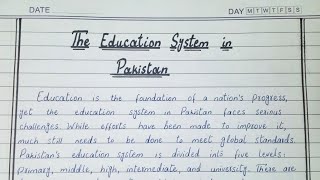 DATE DAY M T W T F S S
The Education System in
Pakistan
Education is the foundation of a nation's progress,
yet the education system in Pakistan faces serious
challenges. While efforts have been made to improve it,
much still needs to be done to meet global standards.
Pakistan's education system is divided into five levels:
primary, middle, high, intermediate, and university. There are